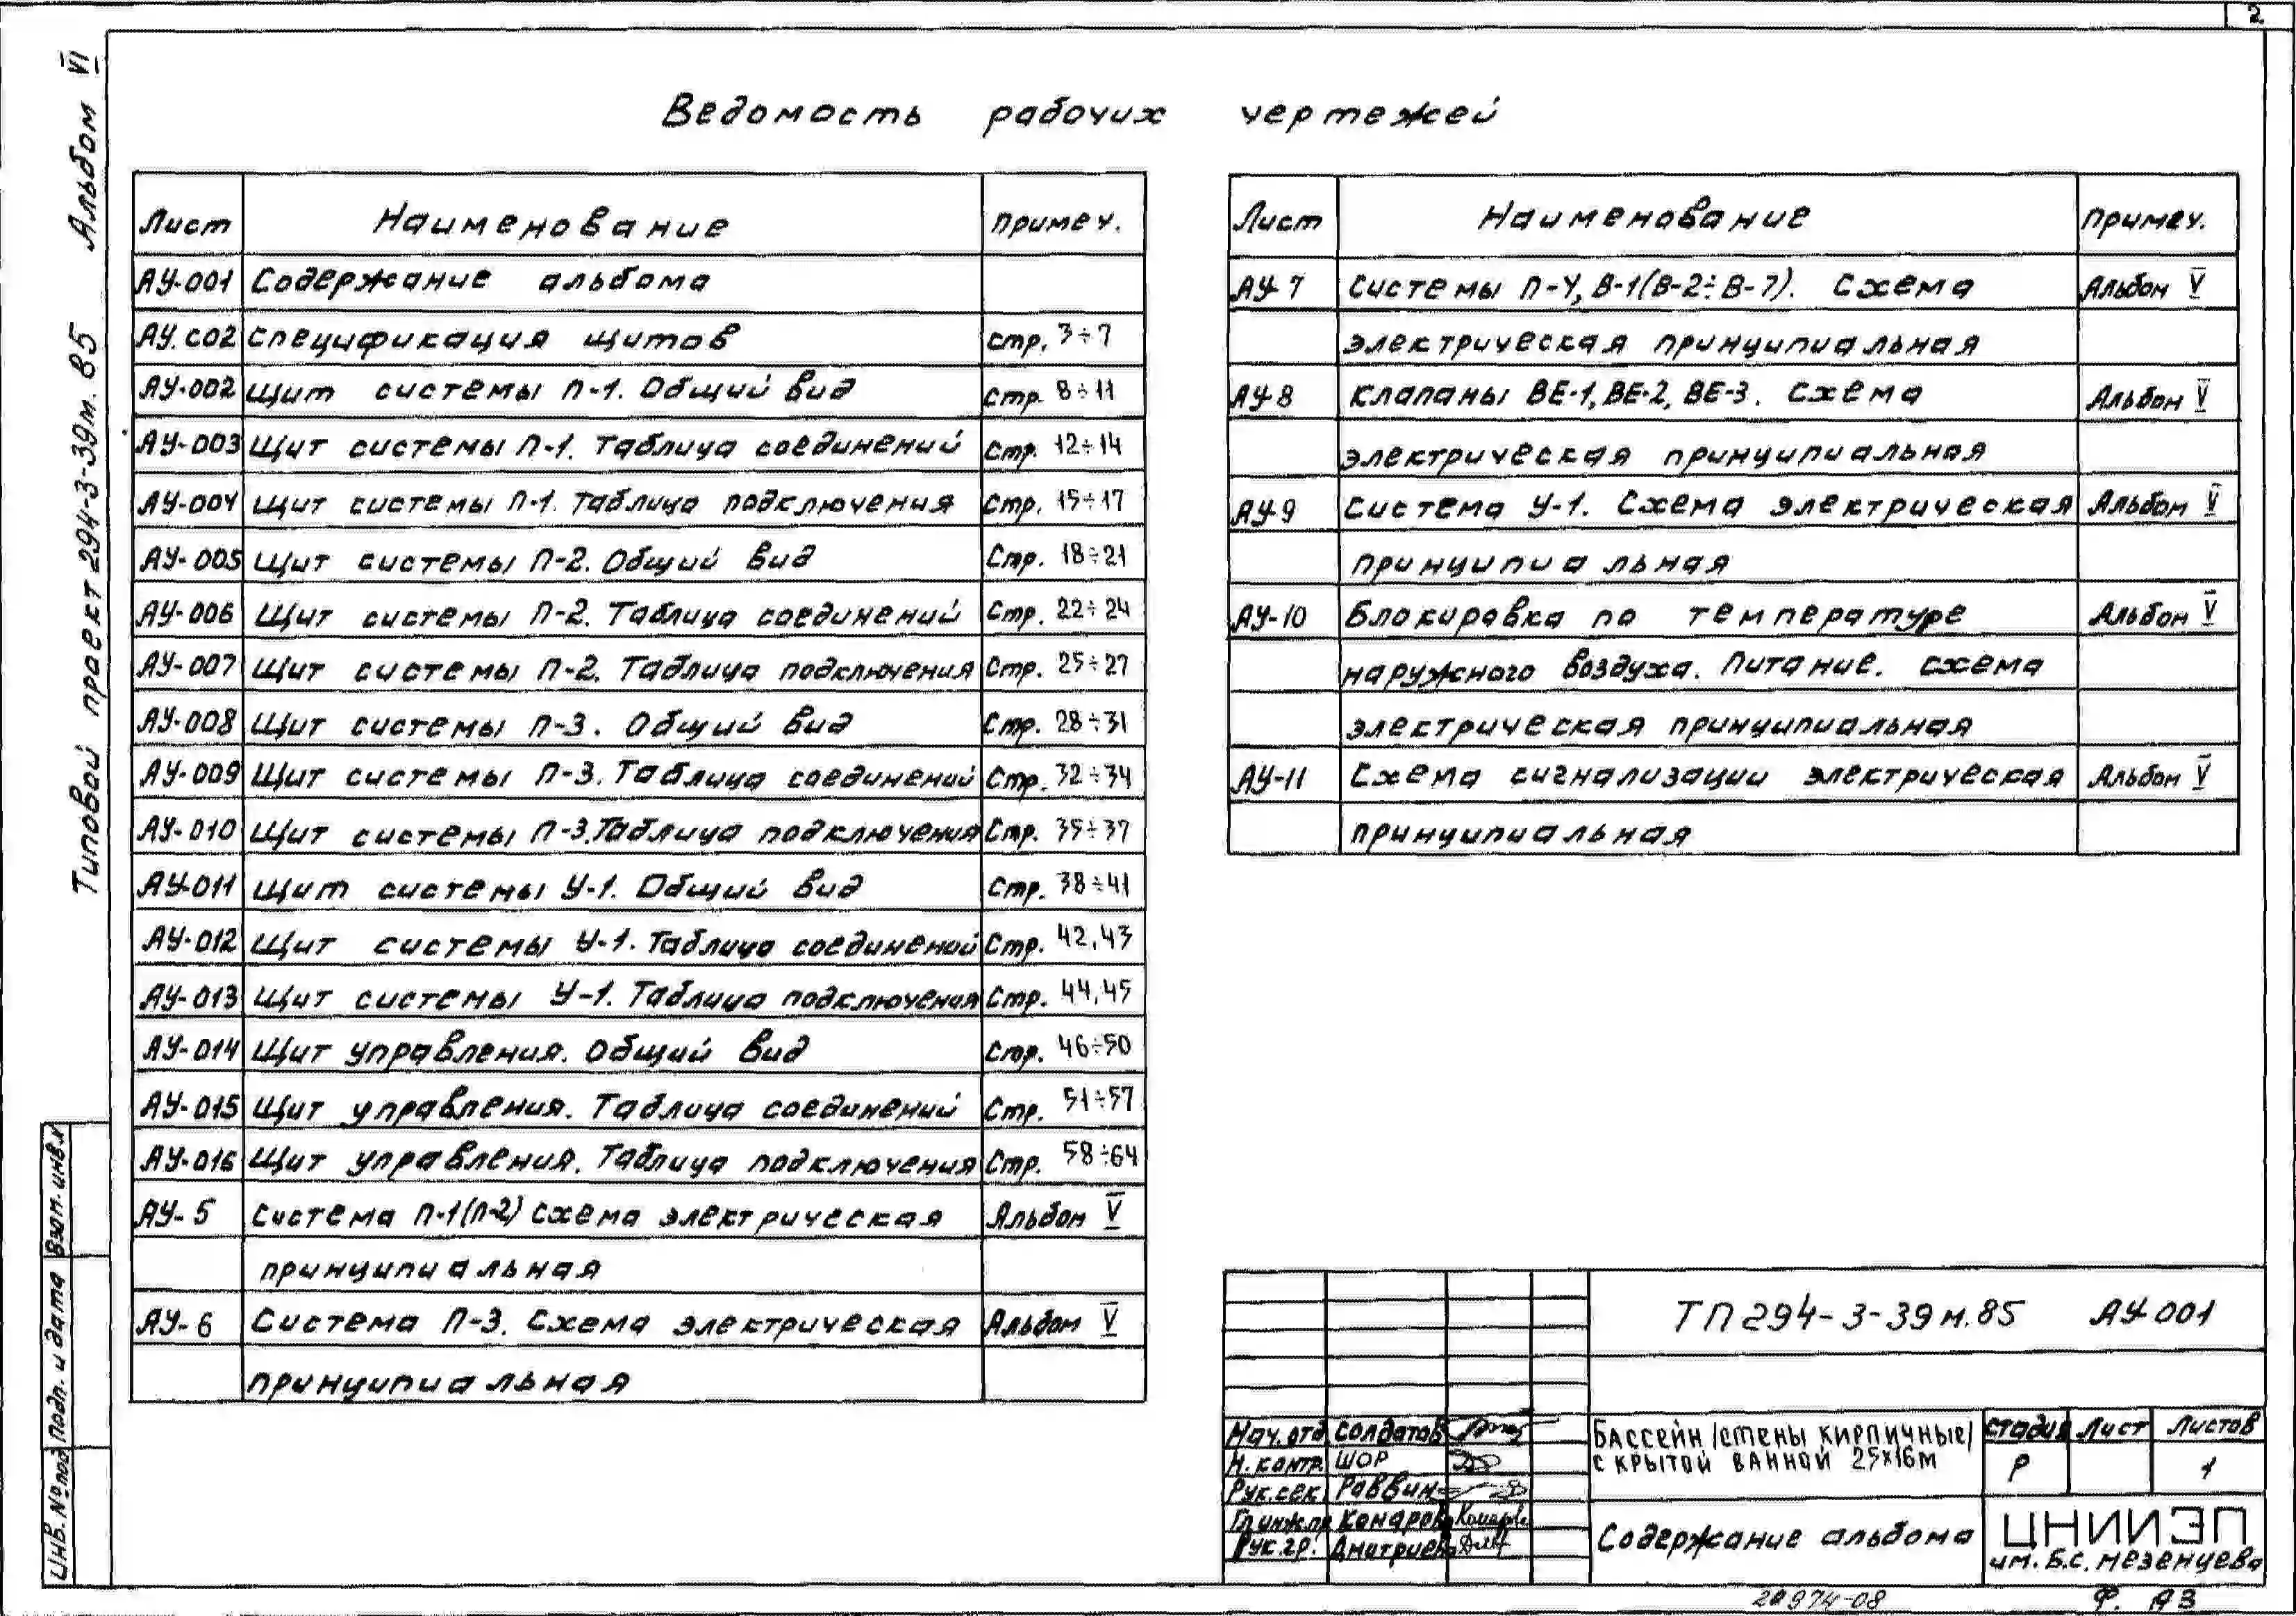 2
Типовой проект 294-3-39м.85 Альбом VI
Ведомость рабочих чертежей
Лист Наименование примеч.
АУ-001 Содержание альбома
АУ.СО2 Спецификация щитов стр. 3÷7
АУ-002 Щит системы П-1. Общий вид Стр. 8÷11
АУ-003 Щит системы П-1. Таблица соединений Стр. 12÷14
АУ-004 Щит системы П-1. Таблица подключения Стр. 15÷17
АУ-005 Щит системы П-2. Общий вид Стр. 18÷21
АУ-006 Щит системы П-2. Таблица соединений Стр. 22÷24
АУ-007 Щит системы П-2. Таблица подключения Стр. 25÷27
АУ-008 Щит системы П-3. Общий вид Стр. 28÷31
АУ-009 Щит системы П-3. Таблица соединений Стр. 32÷34
АУ-010 Щит системы П-3. Таблица подключения Стр. 35÷37
АУ-011 Щит системы У-1. Общий вид Стр. 38÷41
АУ-012 Щит системы У-1. Таблица соединений Стр. 42,43
АУ-013 Щит системы У-1. Таблица подключения Стр. 44,45
АУ-014 Щит управления. Общий вид Стр. 46÷50
АУ-015 Щит управления. Таблица соединений Стр. 51÷57
АУ-016 Щит управления. Таблица подключения Стр. 58÷64
АУ-5 Система П-1(П-2) схема электрическая Альбом V
принципиальная
АУ-6 Система П-3. Схема электрическая Альбом V
принципиальная
Лист Наименование примеч.
АУ-7 Системы П-4, В-1(В-2÷В-7). Схема Альбом V
электрическая принципиальная
АУ-8 Клапаны ВЕ-1, ВЕ-2, ВЕ-3. Схема Альбом V
электрическая принципиальная
АУ-9 Система У-1. Схема электрическая Альбом V
принципиальная
АУ-10 Блокировка по температуре Альбом V
наружного воздуха. Питание. схема
электрическая принципиальная
АУ-11 Схема сигнализации электрическая Альбом V
принципиальная
Инв. № под Подп. и дата Взам. инв.
ТП 294-3-39м.85 АУ-001
Нач. отд Солдатов
Н. контр. Шор
Рук. сек. Раввин
Гл инж. пр Комарова Комарова
Рук. гр. Дмитриева
Бассейн /стены кирпичные/
с крытой ванной 25х16м
стадия Лист Листов
Р 1
Содержание альбома
ЦНИИЭП
им. Б.С. Мезенцева
20974-08 Ф. А3